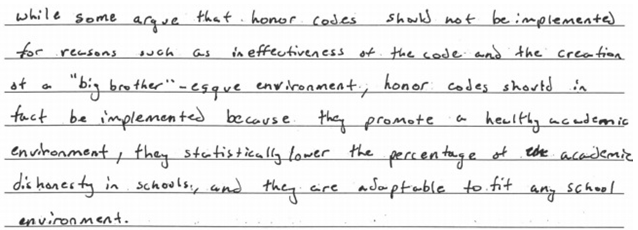 while some argue that honor codes should not be implemented
for reasons such as ineffectiveness of the code and the creation
of a "big brother"-esque environment, honor codes should in
fact be implemented because they promote a healthy academic
environment, they statistically lower the percentage of academic
dishonesty in schools, and they are adaptable to fit any school
environment.